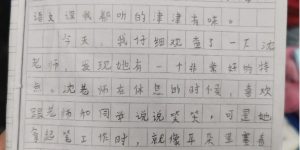 语文课我都听的津津有味。
今天，我仔细观查了一下沈
老师，发现她有一个非常好的特
点。沈老师在休息的时候，喜欢
跟老师和同学说说笑笑，可是她
拿起笔工作时，就像耳朵里塞着